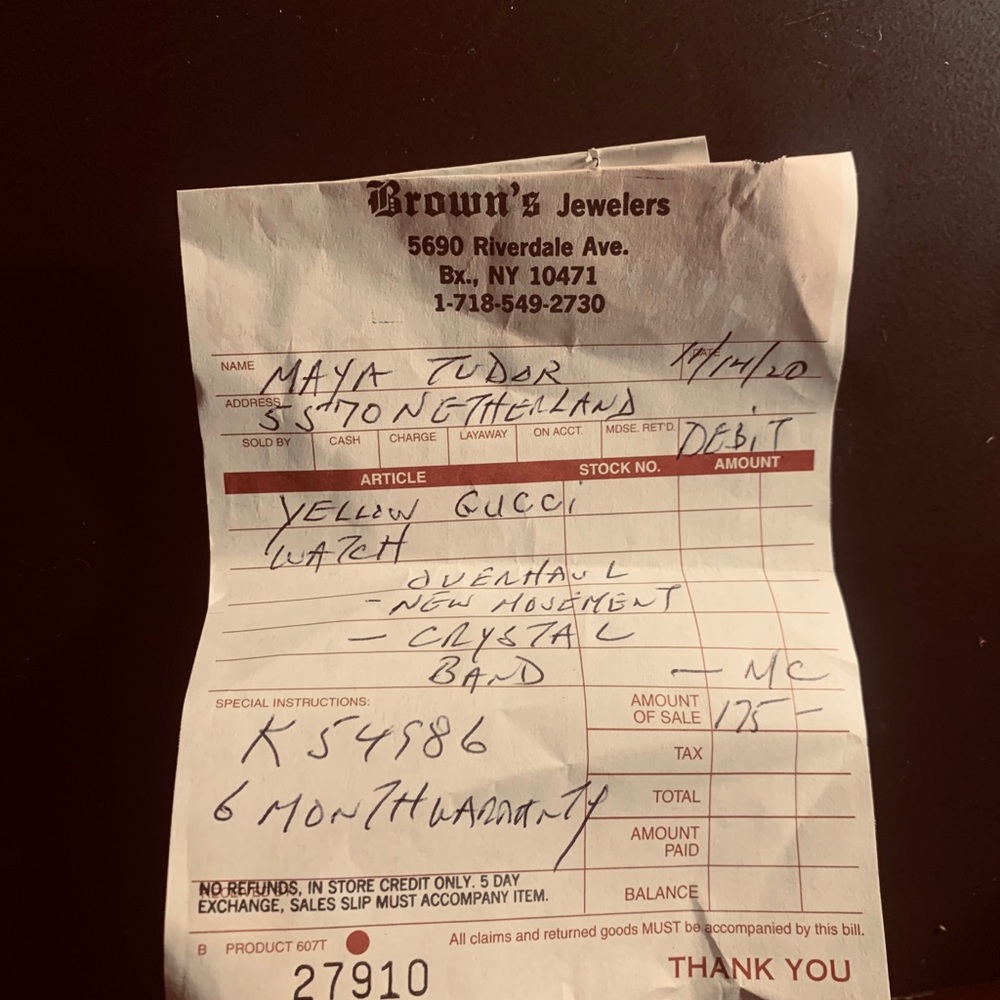 Brown's Jewelers
5690 Riverdale Ave.
Bx., NY 10471
1-718-549-2730
NAME MAYA TUDOR DATE 11/14/20
ADDRESS NETHERLAND
SOLD BY CASH CHARGE LAYAWAY ON ACCT. MDSE. RET'D. DEBIT
ARTICLE STOCK NO. AMOUNT
YELLOW GUCCI
WATCH
OVERHAUL
- NEW MOVEMENT
- CRYSTAL
BAND - MC
SPECIAL INSTRUCTIONS: AMOUNT OF SALE 175 -
K54986
TAX
6 MONTH WARRANTY TOTAL
AMOUNT PAID
NO REFUNDS, IN STORE CREDIT ONLY. 5 DAY
EXCHANGE, SALES SLIP MUST ACCOMPANY ITEM. BALANCE
B PRODUCT 607T All claims and returned goods MUST be accompanied by this bill.
27910 THANK YOU